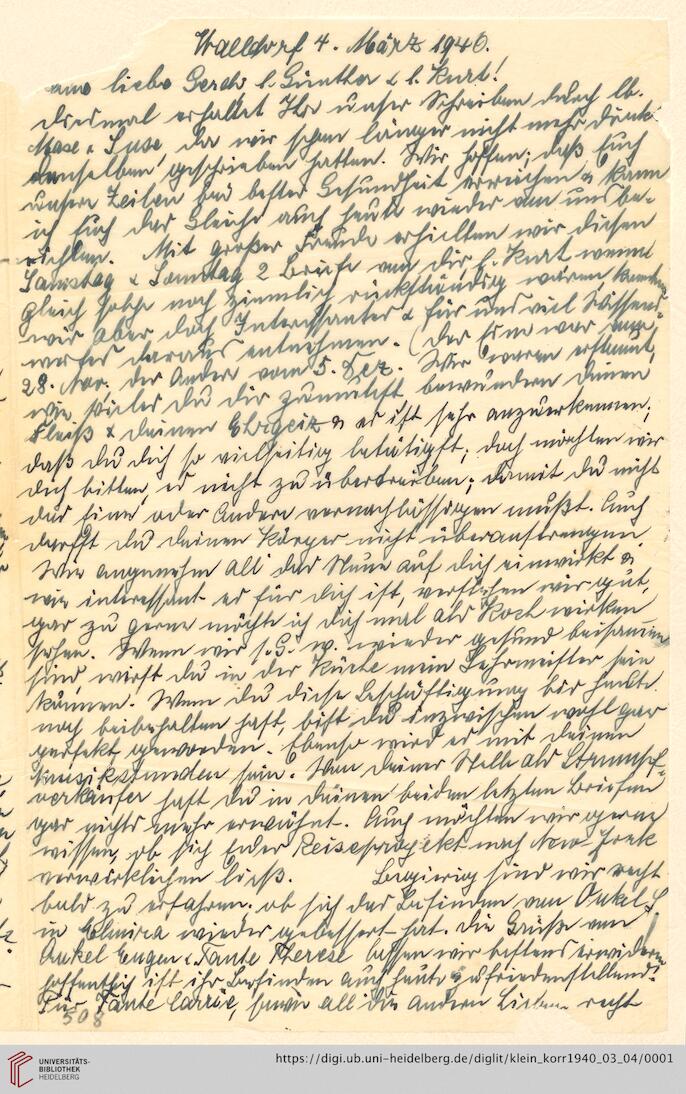 Walldorf 4. März 1940.
liebe Gerda, l. Günther & l. Kurt!
Diesmal erhaltet Ihr unser Schreiben durch lb.
Mase & Suse da wir schon länger nicht mehr direkt
denselben geschrieben hatten. Wir hoffen, daß Euch
unsere Zeilen bei bester Gesundheit erreichen & kann
ich Euch das Gleiche auch heute wieder von uns be-
richten. Mit großer Freude erhielten wir diesen
Samstag & Sonntag 2 Briefe von dir, l. Kurt wenn
gleich solche noch ziemlich rückständig waren, konnten
wir aber doch Interessantes & für uns viel Wissens-
wertes daraus entnehmen. (Der Eine war
28. Nov. der Andere vom 5. Dez. Wir waren erstaunt,
wie vieles du dir zumutest bewundern deinen
Fleiß & deinen Ehrgeiz & es ist sehr anzuerkennen,
daß du dich so vielseitig betätigst; doch möchten wir
dich bitten, es nicht zu übertreiben; damit du nicht
das Eine oder Andere vernachlässigen mußt. Auch
darfst du deinen Körper nicht überanstrengen.
Wie angenehm all das Neue auf dich einwirkt &
wie interessant es für dich ist, verstehen wir gut,
gar zu gerne möchte ich dich mal als Koch wirken
sehen. Wenn wir s. G. w. wieder gesund beisammen
sind, wirst du in der Küche mein Lehrmeister sein
können. Wenn du diese Beschäftigung bis heute
noch beibehalten hast, bist du inzwischen wohl gar
perfekt geworden. Ebenso wird es mit deinen
Musikstunden sein. Von deiner Stelle als Strumpf-
verkäufer hast du in deinen beiden letzten Briefen
gar nichts mehr erwähnt. Auch möchten wir gerne
wissen, ob sich Euer Reiseprojekt nach New-York
verwirklichen ließ. Begierig sind wir recht
bald zu erfahren, ob sich das Befinden von Onkel L.
in Elmira wieder gebessert hat. Die Grüße von
Onkel Eugen & Tante Therese lassen wir bestens erwidern
hoffentlich ist ihr Befinden auch heute zufriedenstellend.
Für Tante Carrie, sowie all die andern Lieben recht
508
UNIVERSITÄTS-
BIBLIOTHEK
HEIDELBERG
https://digi.ub.uni-heidelberg.de/diglit/klein_korr1940_03_04/0001